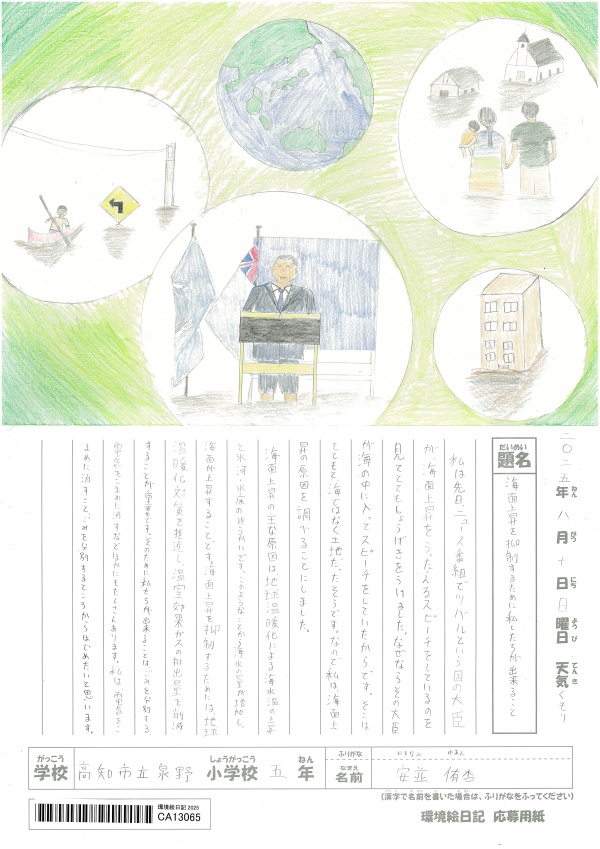 二〇二五年八月十日日曜日 天気くもり
ねん がつ にち ようび てんき
だいめい
題名
海面上昇を抑制するために私たちが出来ること
私は先日、ニュース番組でツバルという国の大臣
が、海面上昇をうったえるスピーチをしているのを
見てとてもしょうげきをうけました。なぜならその大臣
が海の中に入ってスピーチをしていたからです。そこは
もともと海ではなく土地だったそうです。なので私は海面上
昇の原因を調べることにしました。
海面上昇の主な原因は地球温暖化による海水温の上昇
と氷河、氷床のゆうかいです。このようなことから海水の量が増加し、
海面が上昇することです。海面上昇を抑制するためには地球
温暖化対策を推進し、温室効果ガスの排出量を削減
することが重要です。そのために私たちが出来ることは、ごみを分別する、
電気をこまめに消すなどほかにもたくさんあります。私は、電気をこ
まめに消すこと、ごみを分別するところからはじめたいと思います。
がっこう しょうがっこう ねん ふりがな やすなみ ゆあん
学校 高知市立泉野 小学校 五 年 なまえ 名前 安並 侑杏
(漢字で名前を書いた場合は、ふりがなをふってください)
環境絵日記 2025
CA13065
環境絵日記 応募用紙